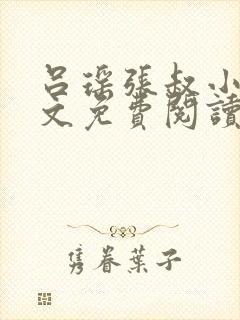 呂瑤張叔小
文免費閱讀
隽眷葉子